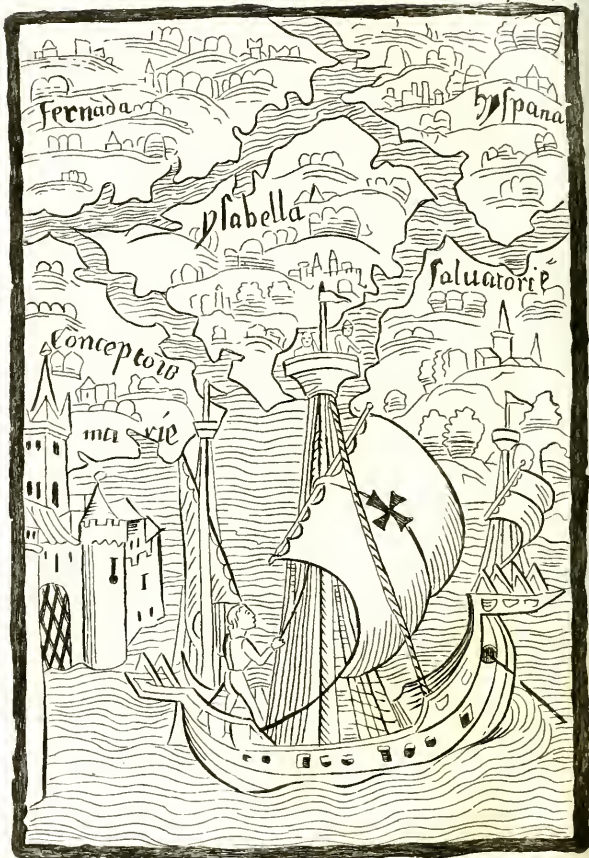 fernada
hyspana
yſabella
ſaluatorie
Conceptoıō
marie